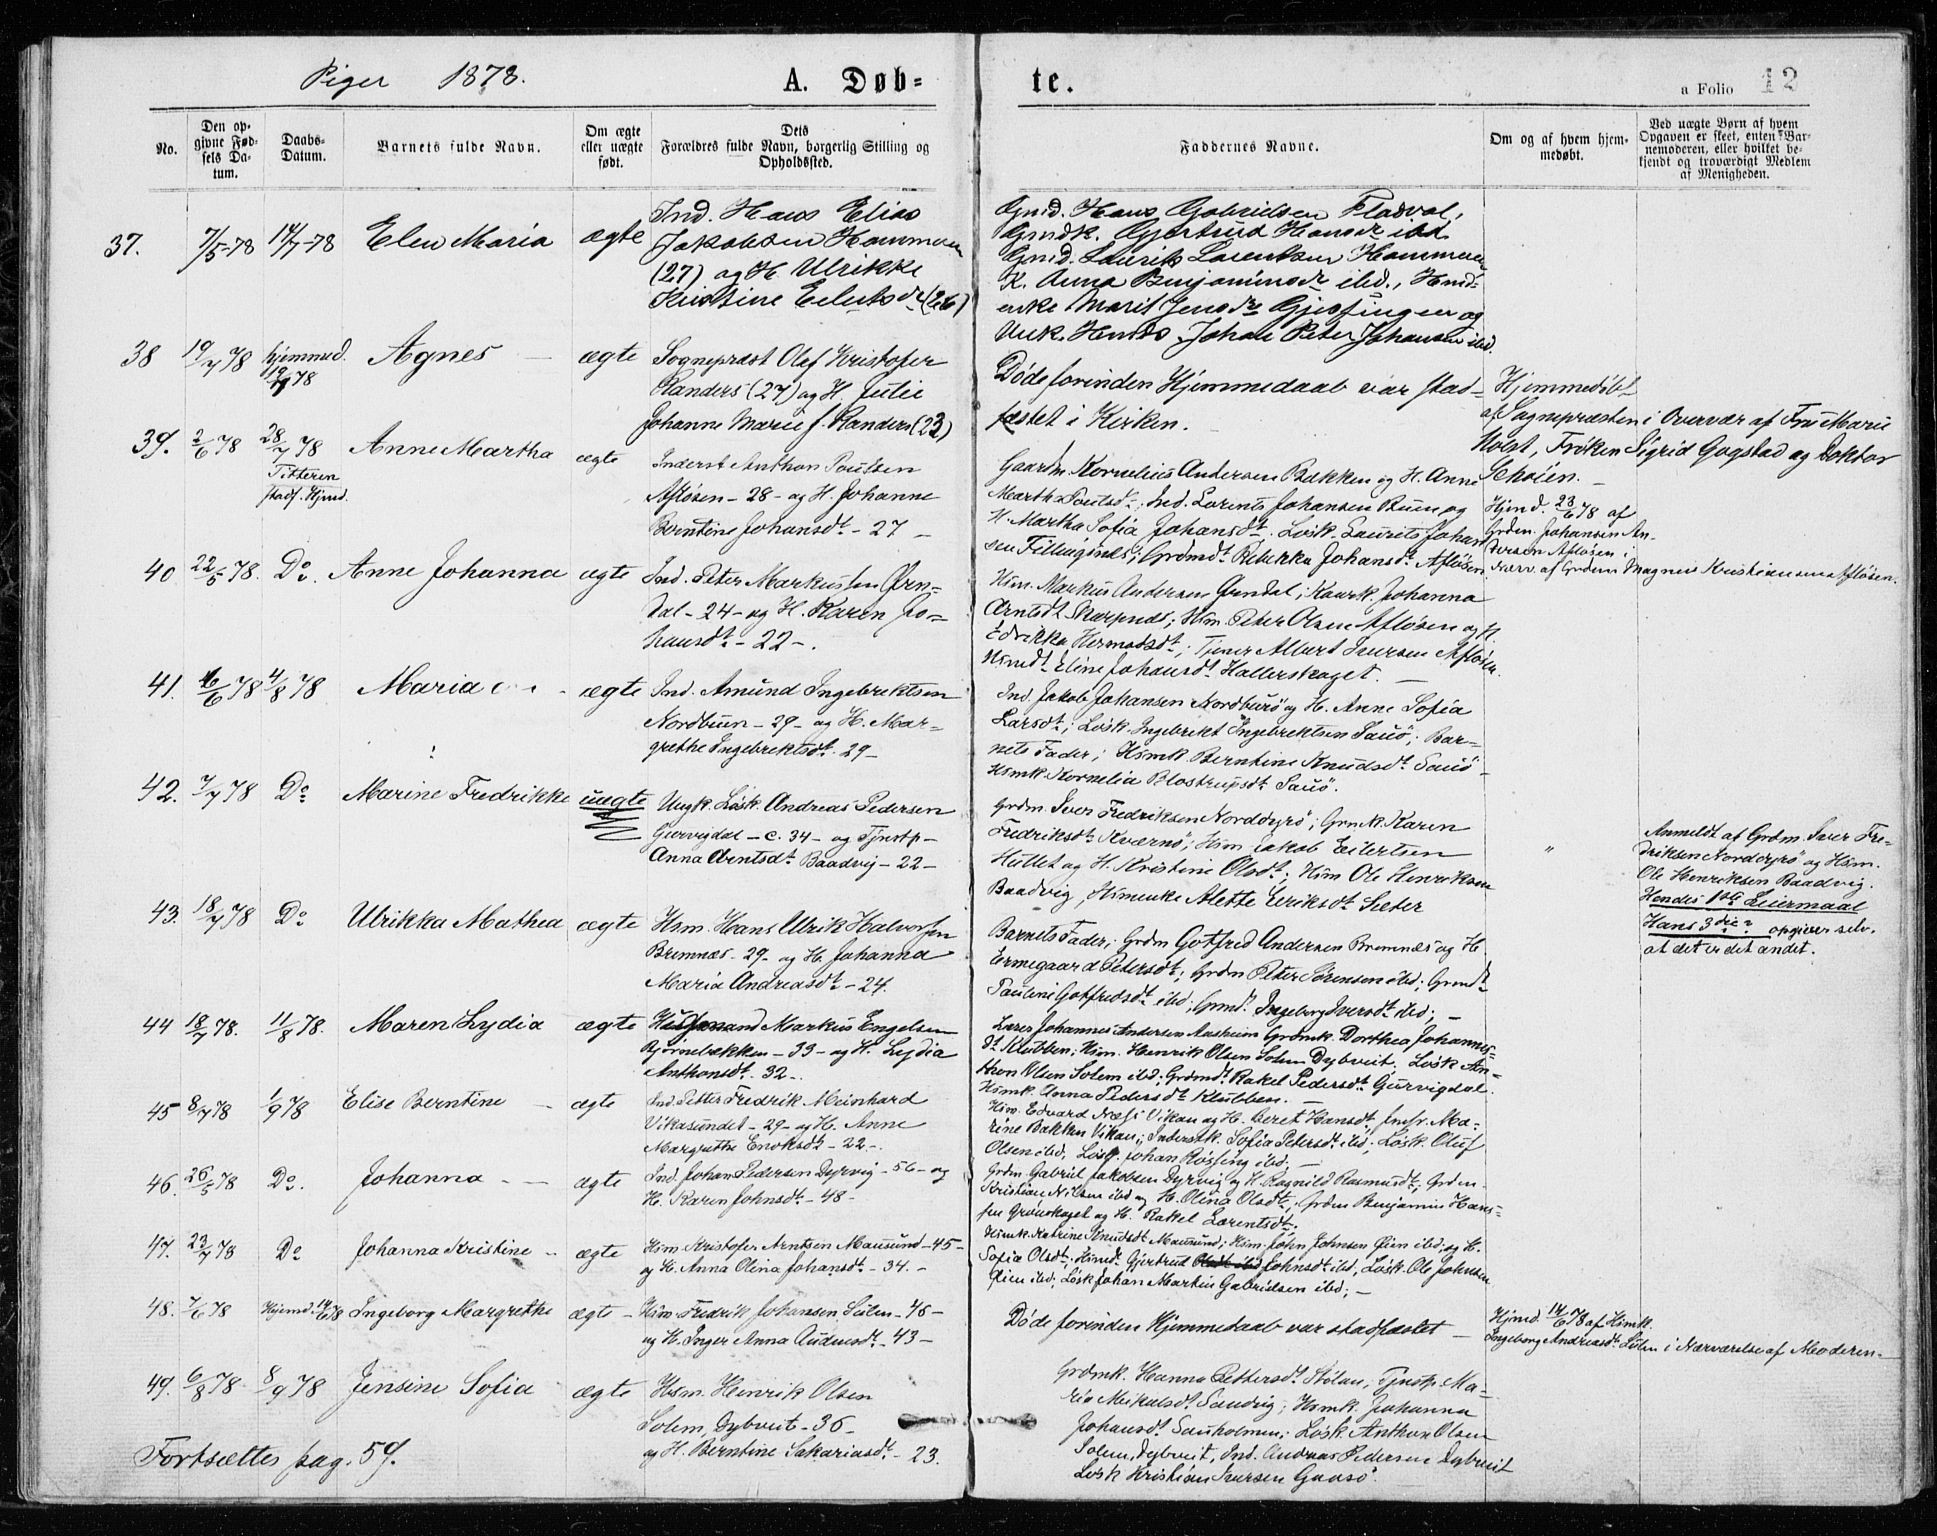 Piger 1878.
A. Døb=
te.
a Folio 12
No.
Den op-
givne Fød-
sels Da-
tum.
Daabs-
Datum.
Barnets fulde Navn.
Om ægte
eller uægte
født.
Dets
Forældres fulde Navn, borgerlig Stilling og
Opholdssted.
Faddernes Navne.
Om og af hvem hjem-
medøbt.
Ved uægte Børn af hvem
Opgaven er skeet, enten Bar-
nemoderen, eller hvilket be-
kjendt og troværdigt Medlem
af Menigheden.
37. 7/5-78 14/7-78 Elen Maria ægte
Ind. Hans Elias
Jakobsen Hammeren
(27) og H. Ulrikke
Kristine Eilertsdr (26)
Gmd. Hans Gabrielsen Fladval,
Grmdk. Gjertrud Hansdr ibd
Gmd. Laurits Lorentsen Hammeren
K. Anna Benjaminsdr ibd., Hmd-
enke Marit Jensdr Gjessingen og
Unk. Hmds. Johan Peter Johansen ibd.
38 19/7 78 hjemmed. 19/7 78 Agnes ægte
Sogneprest Olaf Kristofer
Randers (27) og H. Julie
Johanne Marie f. Randers (23)
Døde forinden Hjemmedaab var stad-
fæstet i Kirken.
Hjemmedøbt
af Sognepræsten i Overvær af Fru Marie
Holst, Frøken Sigrid Gogstad og Doktor
Schøien.
39. 2/6 78 28/7 78 Titteren stadf. Hjmd. Anne Martha ægte
Inderst Anthon Paulsen
Afløsen - 28 - og H. Johanne
Berntine Johansdt - 27 -
Gaardm. Kornelius Andersen Bakken og H. Anne
Martha Poulsdt; Ind. Lorents Johansen Buen og
H. Martha Sofia Johansdt. Løsk. Laurits Johan
sen Fillingsnes; Grdmdt Rebekka Johansdt Afløsen
Hjmd. 23/6 78 af
Grdm. Johansen An-
dersen Afløsen i
Nærv. af Grdm. Magnus Kristiansen Afløsen.
40 22/5 78. Do. Anne Johanna ægte
Ind. Peter Markussen Øren-
dal - 24 - og H. Karen Jo-
hansdt - 22 -.
Hsm. Markus Andersen Ørendal; Kaark. Johanna
Arntsdt Skarpnes; Hsm. Peter Olsen Afløsen og H.
Edrikka Hermodsdt; Tjener Albert Iversen Afløsen.
Hsmdt Eline Johansdt Hallerskaget. -
41. 16/6 78 4/8 78 Maria ægte
Ind. Amund Ingebriktsen
Nordbuen - 29 - og H. Mar-
grethe Ingebrektsdt. 29 -
Ind. Jakob Johansen Nordburø og H. Anne Sofia
Larsdt; Løsk. Ingebrikt Ingebriktsen Sauø; Bar-
nets Fader; Hsmk. Berntine Knudsdt Sauø -
Hsmk Kornelia Blostrupsdt Sauø.
42. 7/7 78 Do Marine Fredrikke uægte
Ungk. Løsk. Andreas Pedersen
Gurvigdal - c. 34 - og Tjnstp-
Anna Arntsdt Baadvig - 22 -
Grdm. Iver Fredriksen Norddyrø; Grmk. Karen
Fredriksdt Kværnø; Hsm Jakob Eilertsen
Hullet og H. Kristine Olsdt; Hsm Ole Henriksen
Baadvig, Hsmenke Alette Eeriksdt Sæter
"
Anmeldt af Grdm. Iver Fre-
driksen Norddyrø og Hsm.
Ole Henriksen Baadvig.
Hendes 1ste Leiermaal
Hans 3die? opgiver selv.
at det er det andet.
43. 18/7 78 Do Ulrikka Mathea ægte
Hsm. Hans Ulrik Halvorsen
Bremnes - 29 - og H. Johanna
Maria Andreasdt - 24.
Barnets Fader; Grdm Gotfred Andersen Bremnes og H.
Ermegaard Petersdt; Grdm Peter Sørensen ibd; Grmdt
Pauline Gotfredsdt ibd; Grmdt Ingeborg Iversdt ibd; -
44 18/7 78. 11/8 78. Maren Lydia ægte
Markus Engelsen
Bjørnebækken - 33 - og H. Lydia
Anthonsdt. 32 -.
Lærer Johannes Andersen Aasheim Grdmk. Dorthea Johannes-
dt Klubben; Hsm. Henrik Olsen Solem Dybveit. Løsk. An-
thon Olsen Solem ibd; Grdmdt Rakel Pedersdt Gurvigdal.
Hsmk. Anna Pedersdt Klubben. -
45 8/7 78 1/9 78 Elise Berntine ægte
Ind. Petter Fredrik Meinhard
Vikasundet - 29 - og H. Anne
Margrethe Enoksdt - 22 -.
Hsm. Edvard Næss Vikan og H. Beret Hansdt, Ma-
rine Bakken Vikan; Inderstk. Sofia Petersdt ibd; Løsk. Oluf
Olsen ibd, Løsk. Johan Røssing ibd; -
46. 26/5 78 Do. Johanna ægte
Ind. Johan Pedersen Dyrvig - 56 - og
H. Karen Johnsdt - 48 -
Grdm. Gabriel Jakobsen Dyrvig og H. Ragnild Rasmusdt; Grdm.
Kristian Nilsen ibd og H. Olina Olsdt; Grdm Benjamin Hans-
sen Grønskaget og H. Rakel Lorentsdt.
47. 23/7 78 Do Johanna Kristine ægte
Hsm. Kristofer Arntsen Mausund - 45 -
og H. Anna Olina Johansdt - 34. -
Hsmk. Katrine Knudsdt Mausund; Hsm. John Johnsen Øien ibd, og H.
Sofia Olsdt; Hsmdt Gjertrud Johnsdt ibd, Løsk. Ole Johnsen
Øien ibd, Løsk Johan Martin Gabrielsen ibd; -
48. 7/6 78 Hjemd. 14/6 78 Ingeborg Margrethe ægte -
Hsm. Fredrik Johansen Sulen - 46 -
og H. Inger Anna Audensdt - 43 -
Døde forinden Hjemmedaab var stadfæstet -
Hjmd. 14/6 78 af Hsmk.
Ingeborg Andreasdt Sulen i Nærværelse af Moderen -
49. 6/8 78 8/9 78 Jensine Sofia ægte
Hsm. Henrik Olsen
Solem, Dybveit - 36 -
og H. Berntine Sakariasdt - 23.
Grdmk. Hanna Pettersdt Stølan; Tjnstp. Ma-
ria Mikalsdt Sandvig; Hsmk. Johanna
Johansdt Sauholmen; Løsk. Anthon Olsen
Solem, Dybveit, Ind. Andreas Pedersen Dybveit
Løsk Kristian Iversen Gaasø.
Fortsættes pag. 59.